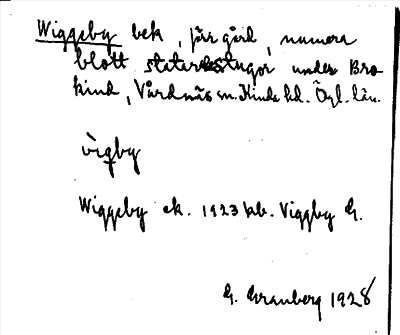 Wiggeby bek, förr gård, numera
blott statarstugor under Bro-
kind, Vårdnäs sn. Kinda hd. Ögl. län.
vigby
Wiggeby ek. 1923 kb. Viggby G.
G. Granberg 1928